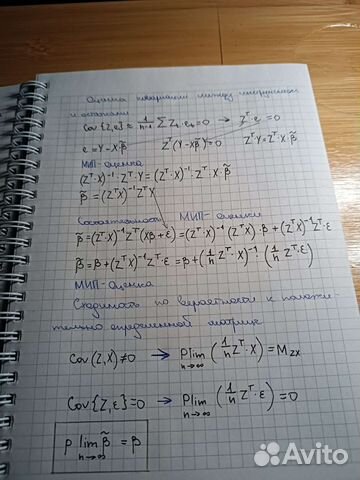 Оценка ковариации между инструментом
и остатками
Cov{Z,e} = 1/(n-1) ∑ Zₜ·eₜ = 0 → Zᵀ·e = 0
e = Y - X·β̃   Zᵀ(Y - Xβ̃) = 0   Zᵀ·Y = Zᵀ·X·β̃
МИП-оценка
(Zᵀ·X)⁻¹·Zᵀ·Y = (Zᵀ·X)⁻¹·Zᵀ·X·β̃
β̃ = (ZᵀX)⁻¹ZᵀX
Состоятельность МИП-оценки
β̃ = (ZᵀX)⁻¹Zᵀ(Xβ + ε) = (ZᵀX)⁻¹(ZᵀX)·β + (ZᵀX)⁻¹Zᵀ·ε
β̃ = β + (ZᵀX)⁻¹Zᵀ·ε = β + (1/n Zᵀ·X)⁻¹(1/n Zᵀ·ε)
МИП-оценка
Сходимость по вероятности к положи-
тельно определенной матрице
Cov(Z,X) ≠ 0 → Plim n→∞ (1/n Zᵀ·X) = M_ZX
Cov{Z,ε} = 0 → Plim n→∞ (1/n Zᵀ·ε) = 0
p lim n→∞ β̃ = β
Avito